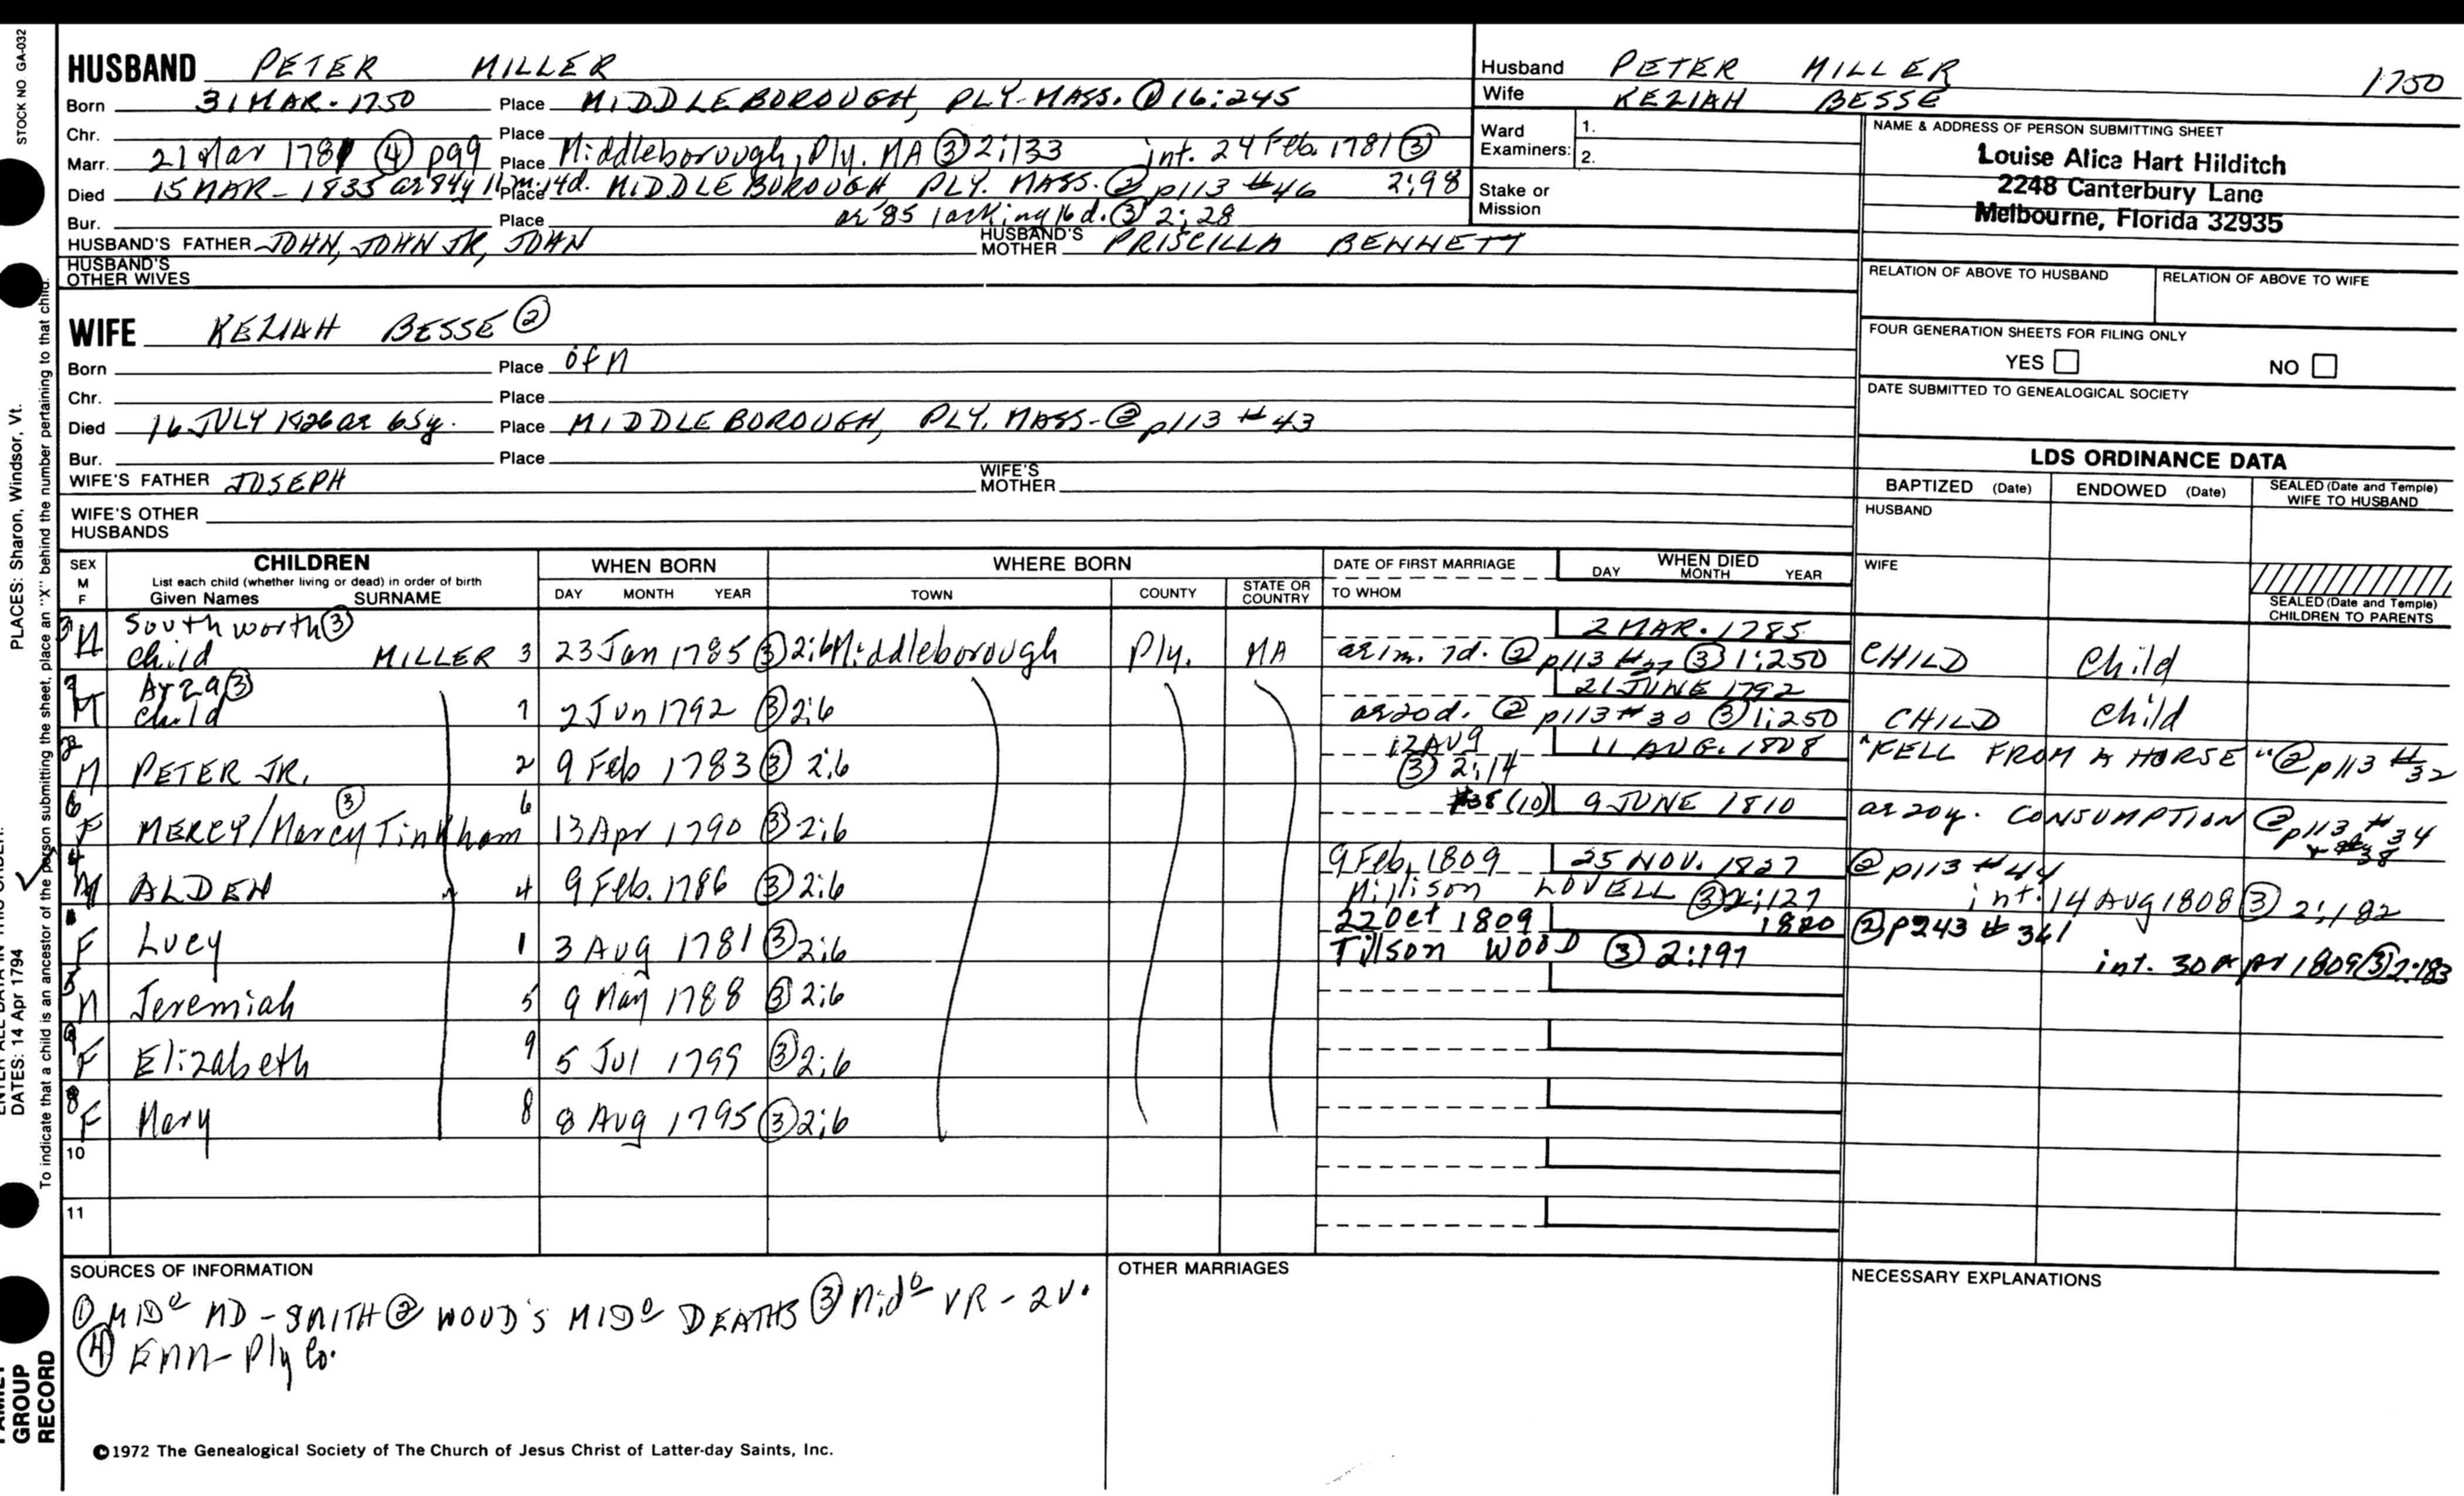 HUSBAND PETER MILLER
Born 31 MAR. 1750 Place MIDDLEBOROUGH, PLY. MASS. ① 16:245
Chr. Place
Marr. 21 Mar 1781 ④ p99 Place Middleborough, Ply. MA ③ 2:133 int. 24 Feb. 1781 ③ 2:98
Died 15 MAR - 1835 ae 84y 11m. 14d. Place MIDDLEBOROUGH PLY. MASS. ② p113 #46
Bur. Place ae 85 lacking 16 d. ③ 2:28
HUSBAND'S FATHER JOHN, JOHN JR, JOHN HUSBAND'S MOTHER PRISCILLA BENNETT
HUSBAND'S OTHER WIVES
WIFE KEZIAH BESSE ②
Born Place of M
Chr. Place
Died 16 JULY 1826 ae 65y. Place MIDDLEBOROUGH, PLY. MASS- ② p113 #43
Bur. Place
WIFE'S FATHER JOSEPH WIFE'S MOTHER
WIFE'S OTHER HUSBANDS
Husband PETER MILLER 1750
Wife KEZIAH BESSE
Ward Examiners: 1.
2.
Stake or Mission
NAME & ADDRESS OF PERSON SUBMITTING SHEET
Louise Alica Hart Hilditch
2248 Canterbury Lane
Melbourne, Florida 32935
RELATION OF ABOVE TO HUSBAND RELATION OF ABOVE TO WIFE
FOUR GENERATION SHEETS FOR FILING ONLY
YES NO
DATE SUBMITTED TO GENEALOGICAL SOCIETY
LDS ORDINANCE DATA
BAPTIZED (Date) ENDOWED (Date) SEALED (Date and Temple) WIFE TO HUSBAND
HUSBAND
WIFE
SEALED (Date and Temple) CHILDREN TO PARENTS
SEX M F CHILDREN List each child (whether living or dead) in order of birth Given Names SURNAME WHEN BORN DAY MONTH YEAR WHERE BORN TOWN COUNTY STATE OR COUNTRY DATE OF FIRST MARRIAGE TO WHOM WHEN DIED DAY MONTH YEAR
Southworth ③ 2 MAR. 1785
M child MILLER 3 23 Jan 1785 ③ 2:6 Middleborough Ply. MA ae 1m. 7d. ② p113 #27 ③ 1:250 CHILD Child
Ar29 ③ 21 JUNE 1792
M child 7 2 Jun 1792 ③ 2:6 ae 20d. ② p113 #30 ③ 1:250 CHILD child
M PETER JR. 2 9 Feb 1783 ③ 2:6 12 AUG ③ 2:14 11 AUG. 1808 "FELL FROM A HORSE" ② p113 #32
6 F MERCY/Marcy Tinkham ③ 6 13 Apr 1790 ③ 2:6 #38 (10) 9 JUNE 1810 ae 20y. CONSUMPTION ② p113 #34
4 M ALDEN 4 9 Feb. 1786 ③ 2:6 9 Feb. 1809 25 NOV. 1827 ② p113 #44
Millison LOVELL ③ 2:127 int. 14 Aug 1808 ③ 2:182
F Lucy 1 3 Aug 1781 ③ 2:6 22 Oct 1809 1820 ② p243 #361
Tillson WOOD ③ 2:197 int. 30 Apr 1809 ③ 2:183
5 M Jeremiah 5 9 May 1788 ③ 2:6
9 F Elizabeth 9 5 Jul 1799 ③ 2:6
8 F Mary 8 8 Aug 1795 ③ 2:6
10
11
SOURCES OF INFORMATION
① MIDo MD - SMITH ② WOOD'S MIDo DEATHS ③ Mido VR - 2V.
④ Enn- Ply Co.
OTHER MARRIAGES
NECESSARY EXPLANATIONS
©1972 The Genealogical Society of The Church of Jesus Christ of Latter-day Saints, Inc.
STOCK NO GA-032
PLACES: Sharon, Windsor, Vt.
DATES: 14 Apr 1794
To indicate that a child is an ancestor of the person submitting the sheet, place an "X" behind the number pertaining to that child.
GROUP
RECORD